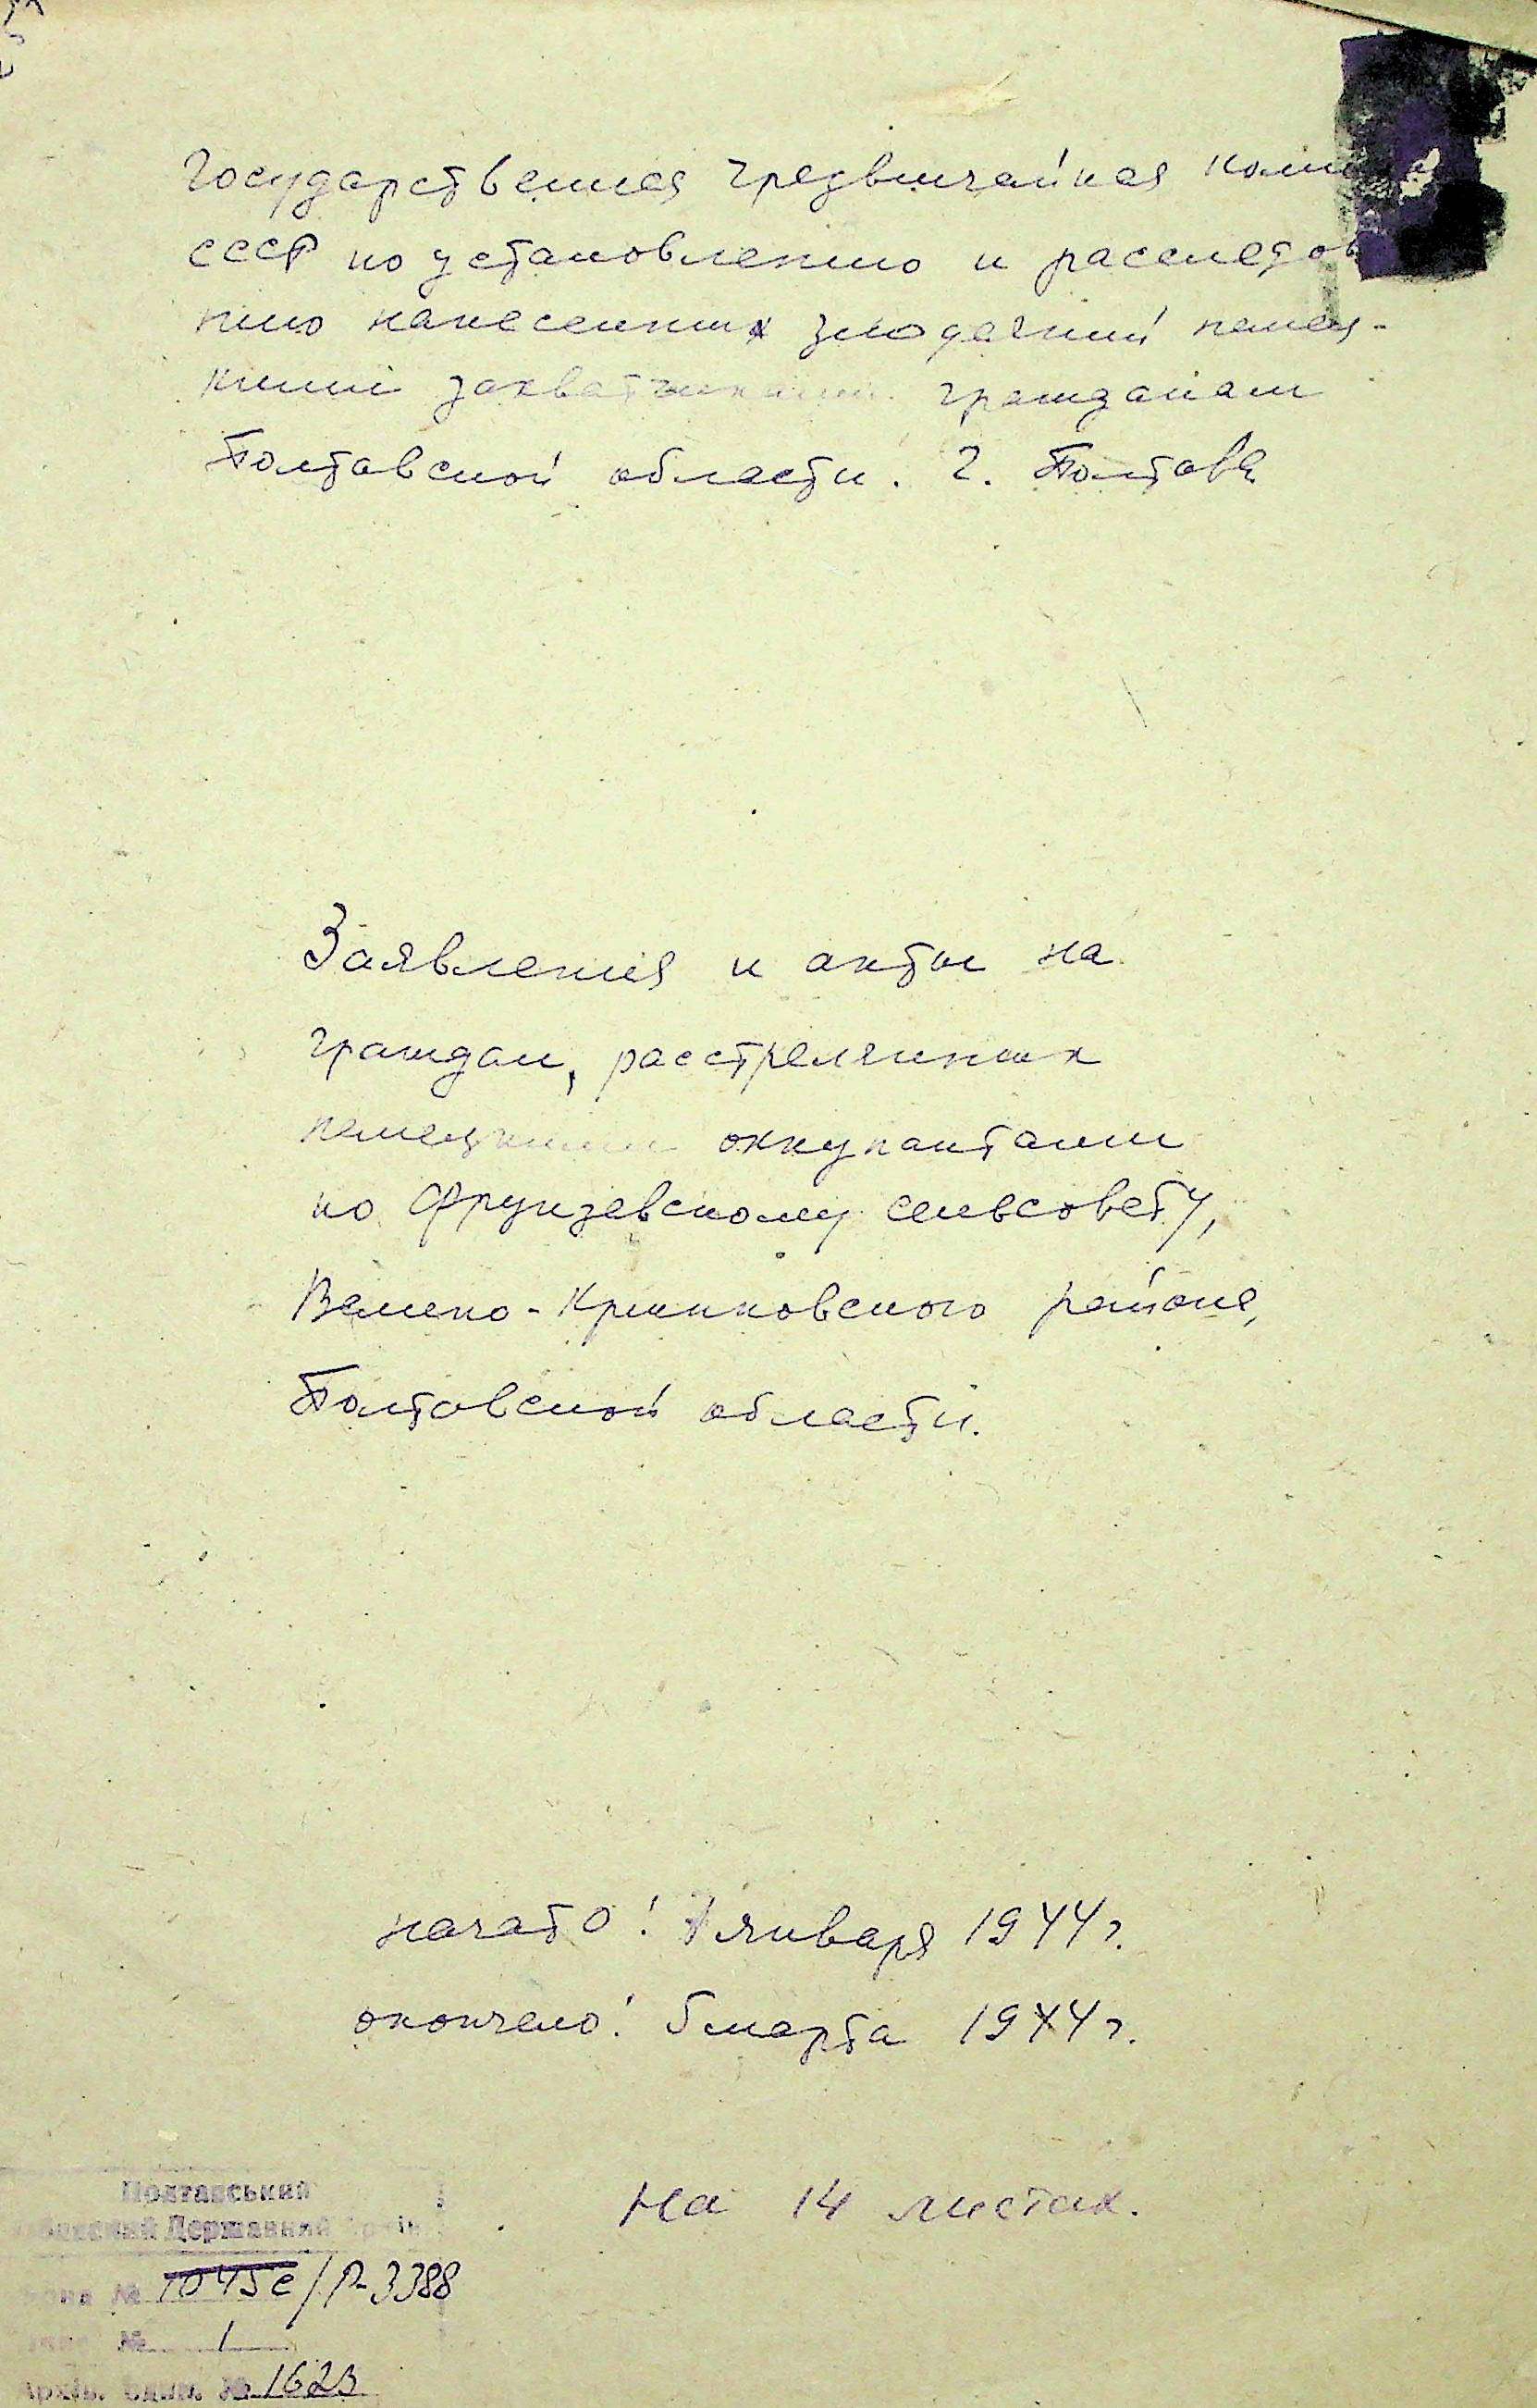 Государственная чрезвычайная коми
СССР по установлению и расследов
нию нанесенных злодеяний немец-
кими захватчиками гражданам
Полтавской области. г. Полтава
Заявления и акты на
граждан, расстрелянных
немецкими оккупантами
по Фрунзевскому сельсовету,
Велико-Крынковского района,
Полтавской области.
начато: января 1944 г.
окончено: 5 марта 1944 г.
На 14 листах.
Полтавський
Державний
№ 1045с/Р-3388
№ 1
Архів. Один. № 1623